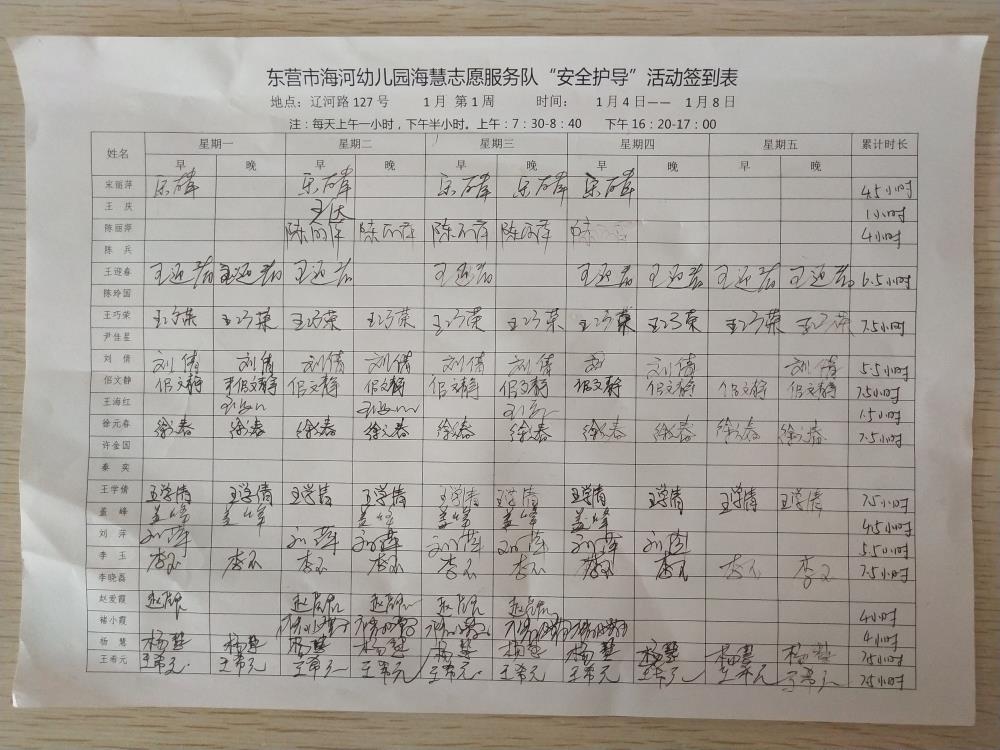 东营市海河幼儿园海慧志愿服务队“安全护导”活动签到表
地点：辽河路 127 号 1 月 第 1 周 时间： 1 月 4 日—— 1 月 8 日
注：每天上午一小时，下午半小时。上午：7：30-8：40 下午 16：20-17：00
姓名 星期一 星期二 星期三 星期四 星期五 累计时长
早 晚 早 晚 早 晚 早 晚 早 晚
宋丽萍 4.5小时
王 庆 王庆 1小时
陈丽萍 陈丽萍 陈丽萍 陈丽萍 陈丽萍 陈丽萍 4小时
陈 兵
王迎春 王迎春 王迎春 王迎春 王迎春 王迎春 王迎春 王迎春 王迎春 6.5小时
陈玲国
王巧荣 王巧荣 王巧荣 王巧荣 王巧荣 王巧荣 王巧荣 王巧荣 王巧荣 王巧荣 王巧荣 7.5小时
尹佳星
刘 倩 刘倩 刘倩 刘倩 刘倩 刘倩 刘倩 刘 刘倩 刘倩 5.5小时
侣文静 侣文静 侣文静 侣文静 侣文静 侣文静 侣文静 侣文静 侣文静 侣文静 侣文静 7.5小时
王海红 1.5小时
徐元春 徐元春 徐元春 徐元春 徐元春 徐元春 徐元春 徐元春 徐元春 徐元春 徐元春 7.5小时
许金国
秦 奕
王学倩 王学倩 王学倩 王学倩 王学倩 王学倩 王学倩 王学倩 王学倩 王学倩 王学倩 7.5小时
盖 峰 盖峰 盖峰 盖峰 盖峰 盖峰 4.5小时
刘 萍 刘萍 刘萍 刘萍 刘萍 刘萍 刘萍 刘萍 5.5小时
李 玉 李玉 李玉 李玉 李玉 李玉 李玉 李玉 李玉 李玉 李玉 7.5小时
李晓磊
赵爱霞 4小时
褚小霞 4小时
杨 慧 杨慧 杨慧 杨慧 杨慧 杨慧 杨慧 杨慧 杨慧 杨慧 杨慧 7.5小时
王希元 王希元 王希元 王希元 王希元 王希元 王希元 王希元 王希元 王希元 王希元 7.5小时